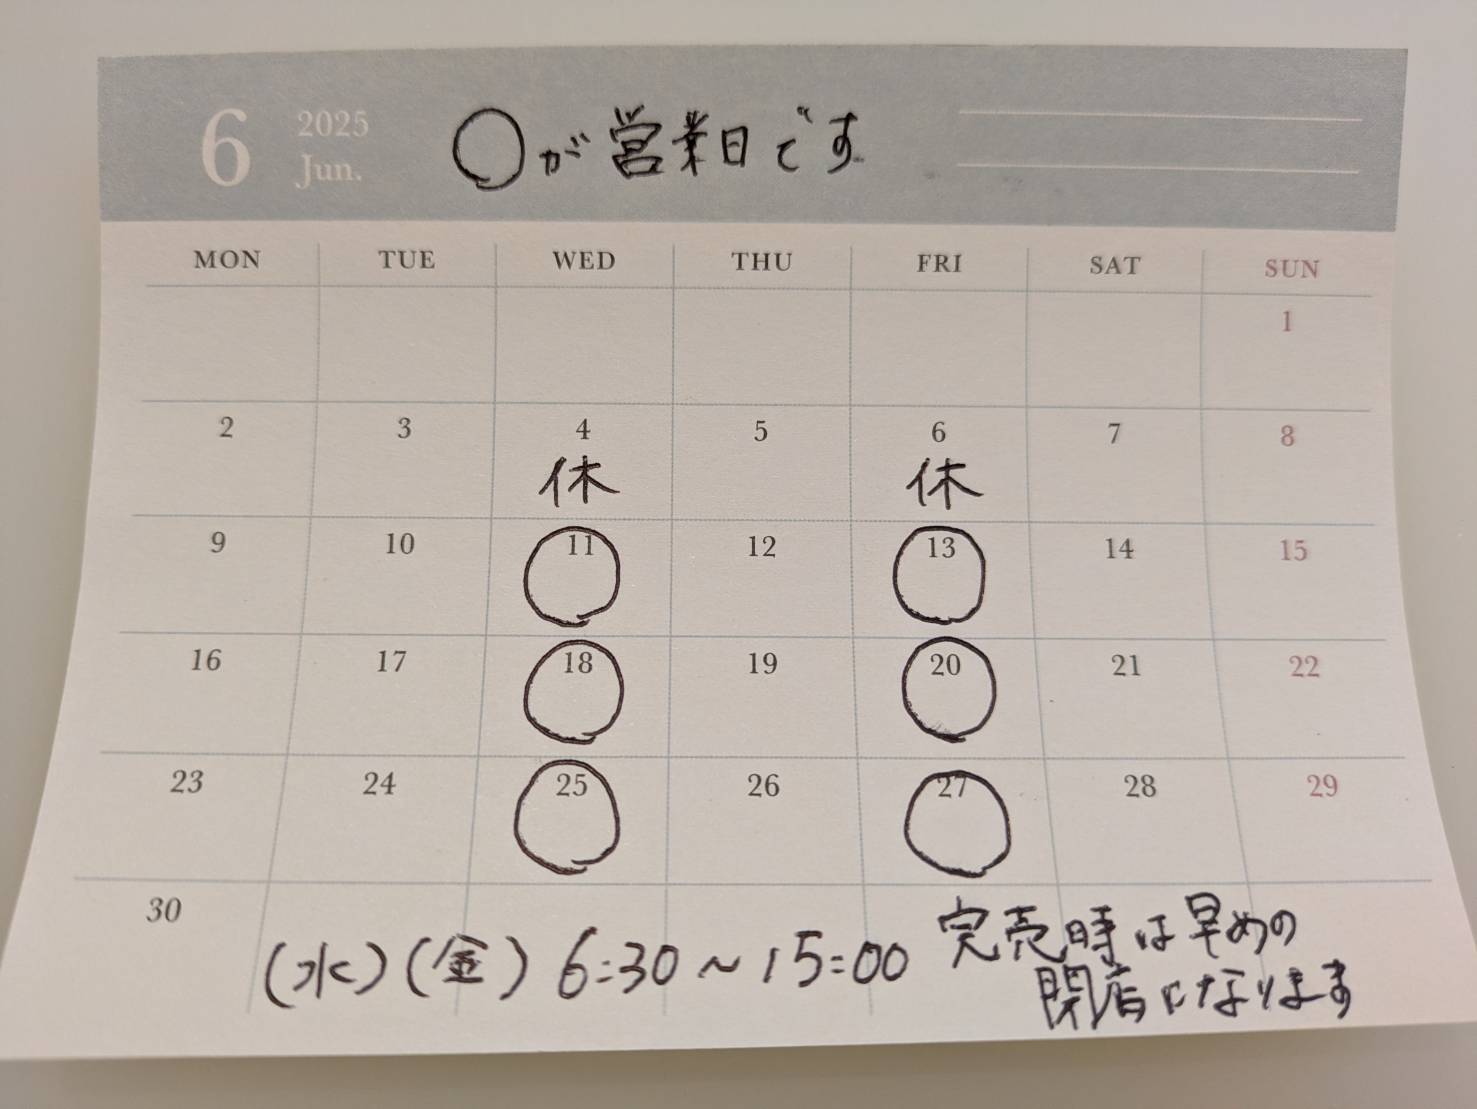 6 2025 ○が営業日です
Jun.
MON TUE WED THU FRI SAT SUN
1
2 3 4 5 6 7 8
休 休
9 10 11 12 13 14 15
16 17 18 19 20 21 22
23 24 25 26 27 28 29
30
(水)(金) 6:30~15:00 完売時は早めの
閉店になります